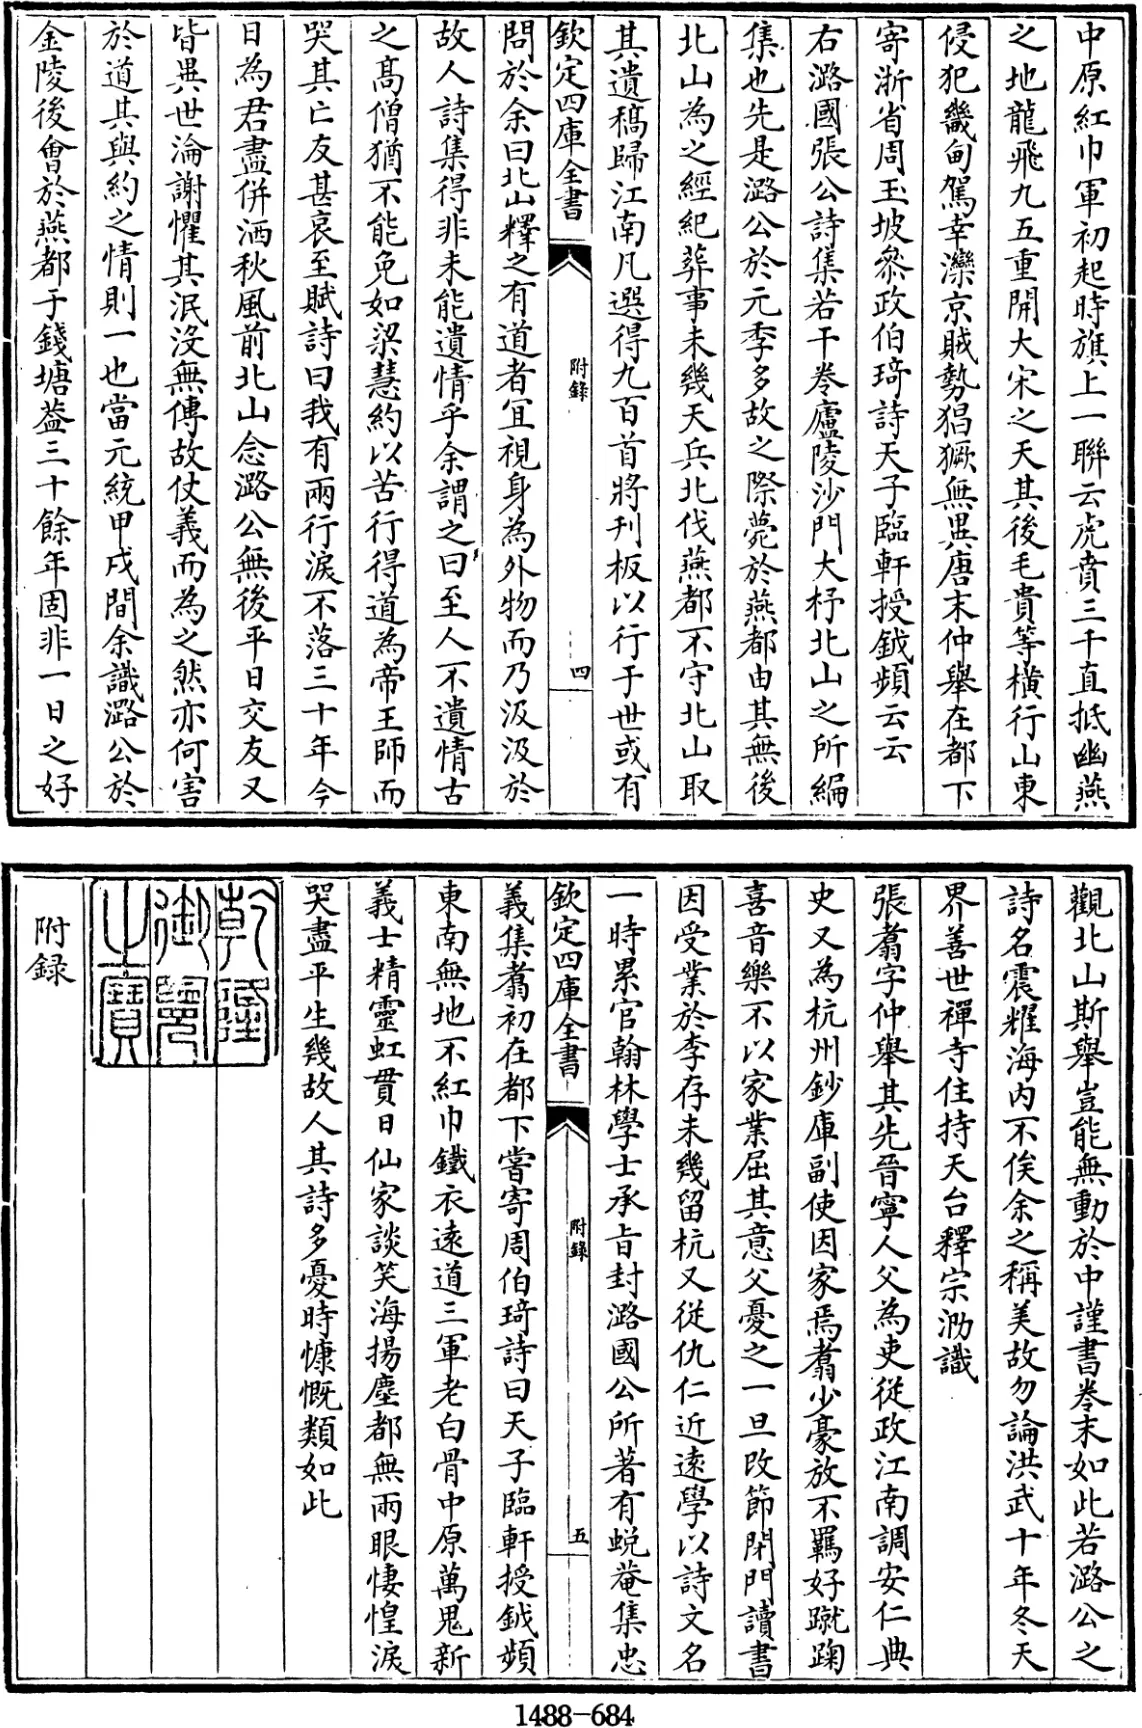 中原紅巾軍初起時旗上一聯云虎賁三千直抵幽燕
之地龍飛九五重開大宋之天其後毛貴等橫行山東
侵犯畿甸駕幸灤京賊勢猖獗無異唐末仲舉在都下
寄浙省周玉坡叅政伯琦詩天子臨軒授鉞頻云云
右潞國張公詩集若干卷廬陵沙門大杼北山之所編
集也先是潞公於元季多故之際薨於燕都由其無後
北山為之經紀葬事未幾天兵北伐燕都不守北山取
其遺稿歸江南凡選得九百首將刋板以行于世或有
欽定四庫全書
附錄
四
問於余曰北山釋之有道者宜視身為外物而乃汲汲於
故人詩集得非未能遺情乎余謂之曰至人不遺情古
之髙僧猶不能免如梁慧約以苦行得道為帝王師而
哭其亡友甚哀至賦詩曰我有兩行淚不落三十年今
日為君盡併洒秋風前北山念潞公無後平日交友又
皆異世淪謝懼其泯没無傳故仗義而為之然亦何害
於道其與約之情則一也當元統甲戌間余識潞公於
金陵後會於燕都于錢塘葢三十餘年固非一日之好
觀北山斯舉豈能無動於中謹書卷末如此若潞公之
詩名震耀海内不俟余之稱美故勿論洪武十年冬天
界善世禪寺住持天台釋宗泐識
張翥字仲舉其先晉寧人父為吏從政江南調安仁典
史又為杭州鈔庫副使因家焉翥少豪放不羈好蹴踘
喜音樂不以家業屈其意父憂之一旦改節閉門讀書
因受業於李存未幾留杭又從仇仁近逺學以詩文名
一時累官翰林學士承㫖封潞國公所著有蜕菴集忠
欽定四庫全書
附錄
五
義集翥初在都下嘗寄周伯琦詩曰天子臨軒授鉞頻
東南無地不紅巾鐵衣逺道三軍老白骨中原萬鬼新
義士精靈虹貫日仙家談笑海揚塵都無兩眼悽惶淚
哭盡平生幾故人其詩多憂時慷慨類如此
乾隆
御覽
之寶
附録
1488-684